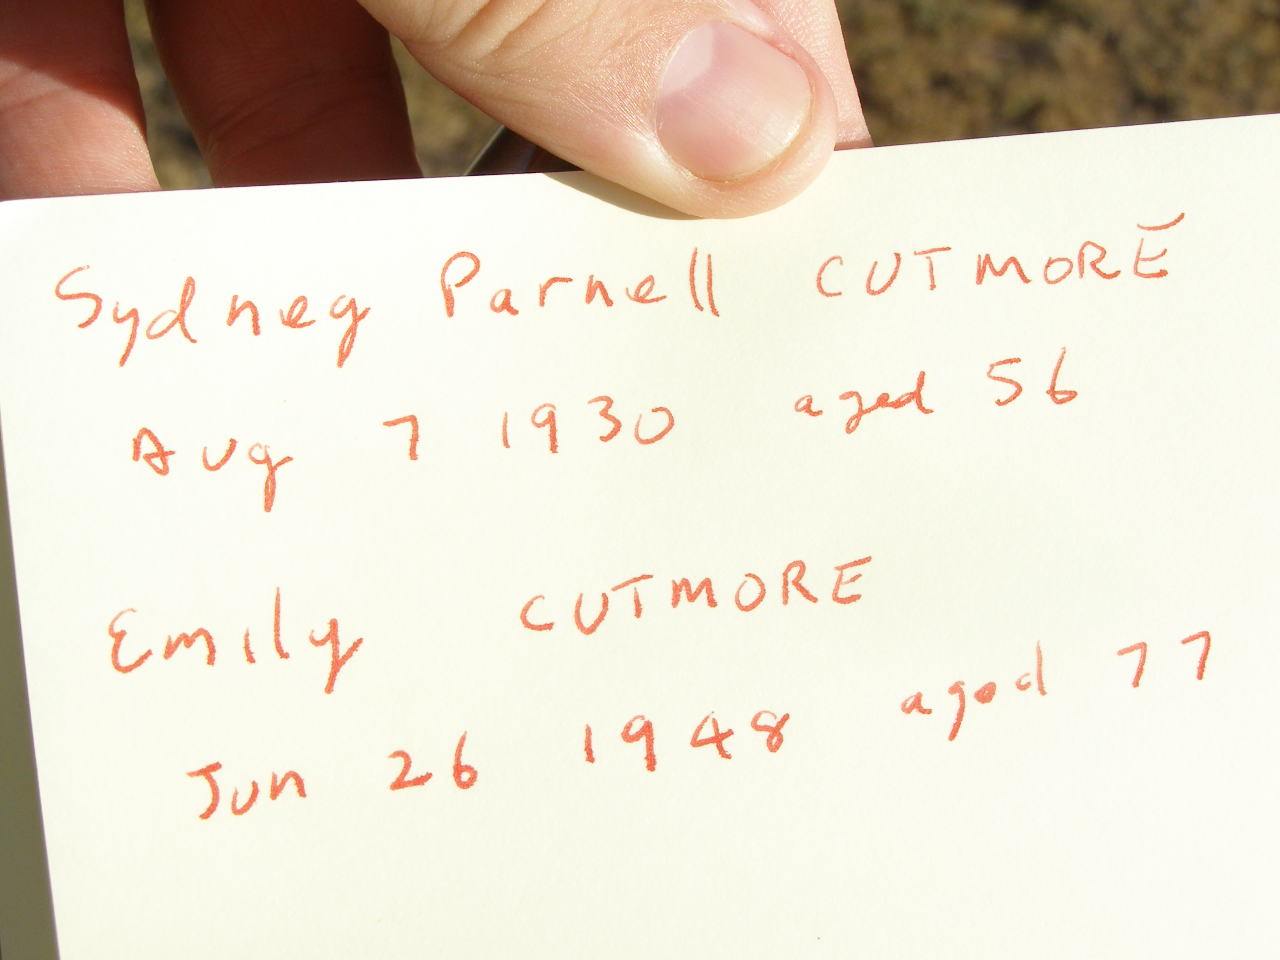 Sydney Parnell CUTMORE
Aug 7 1930 aged 56
Emily CUTMORE
Jun 26 1948 aged 77